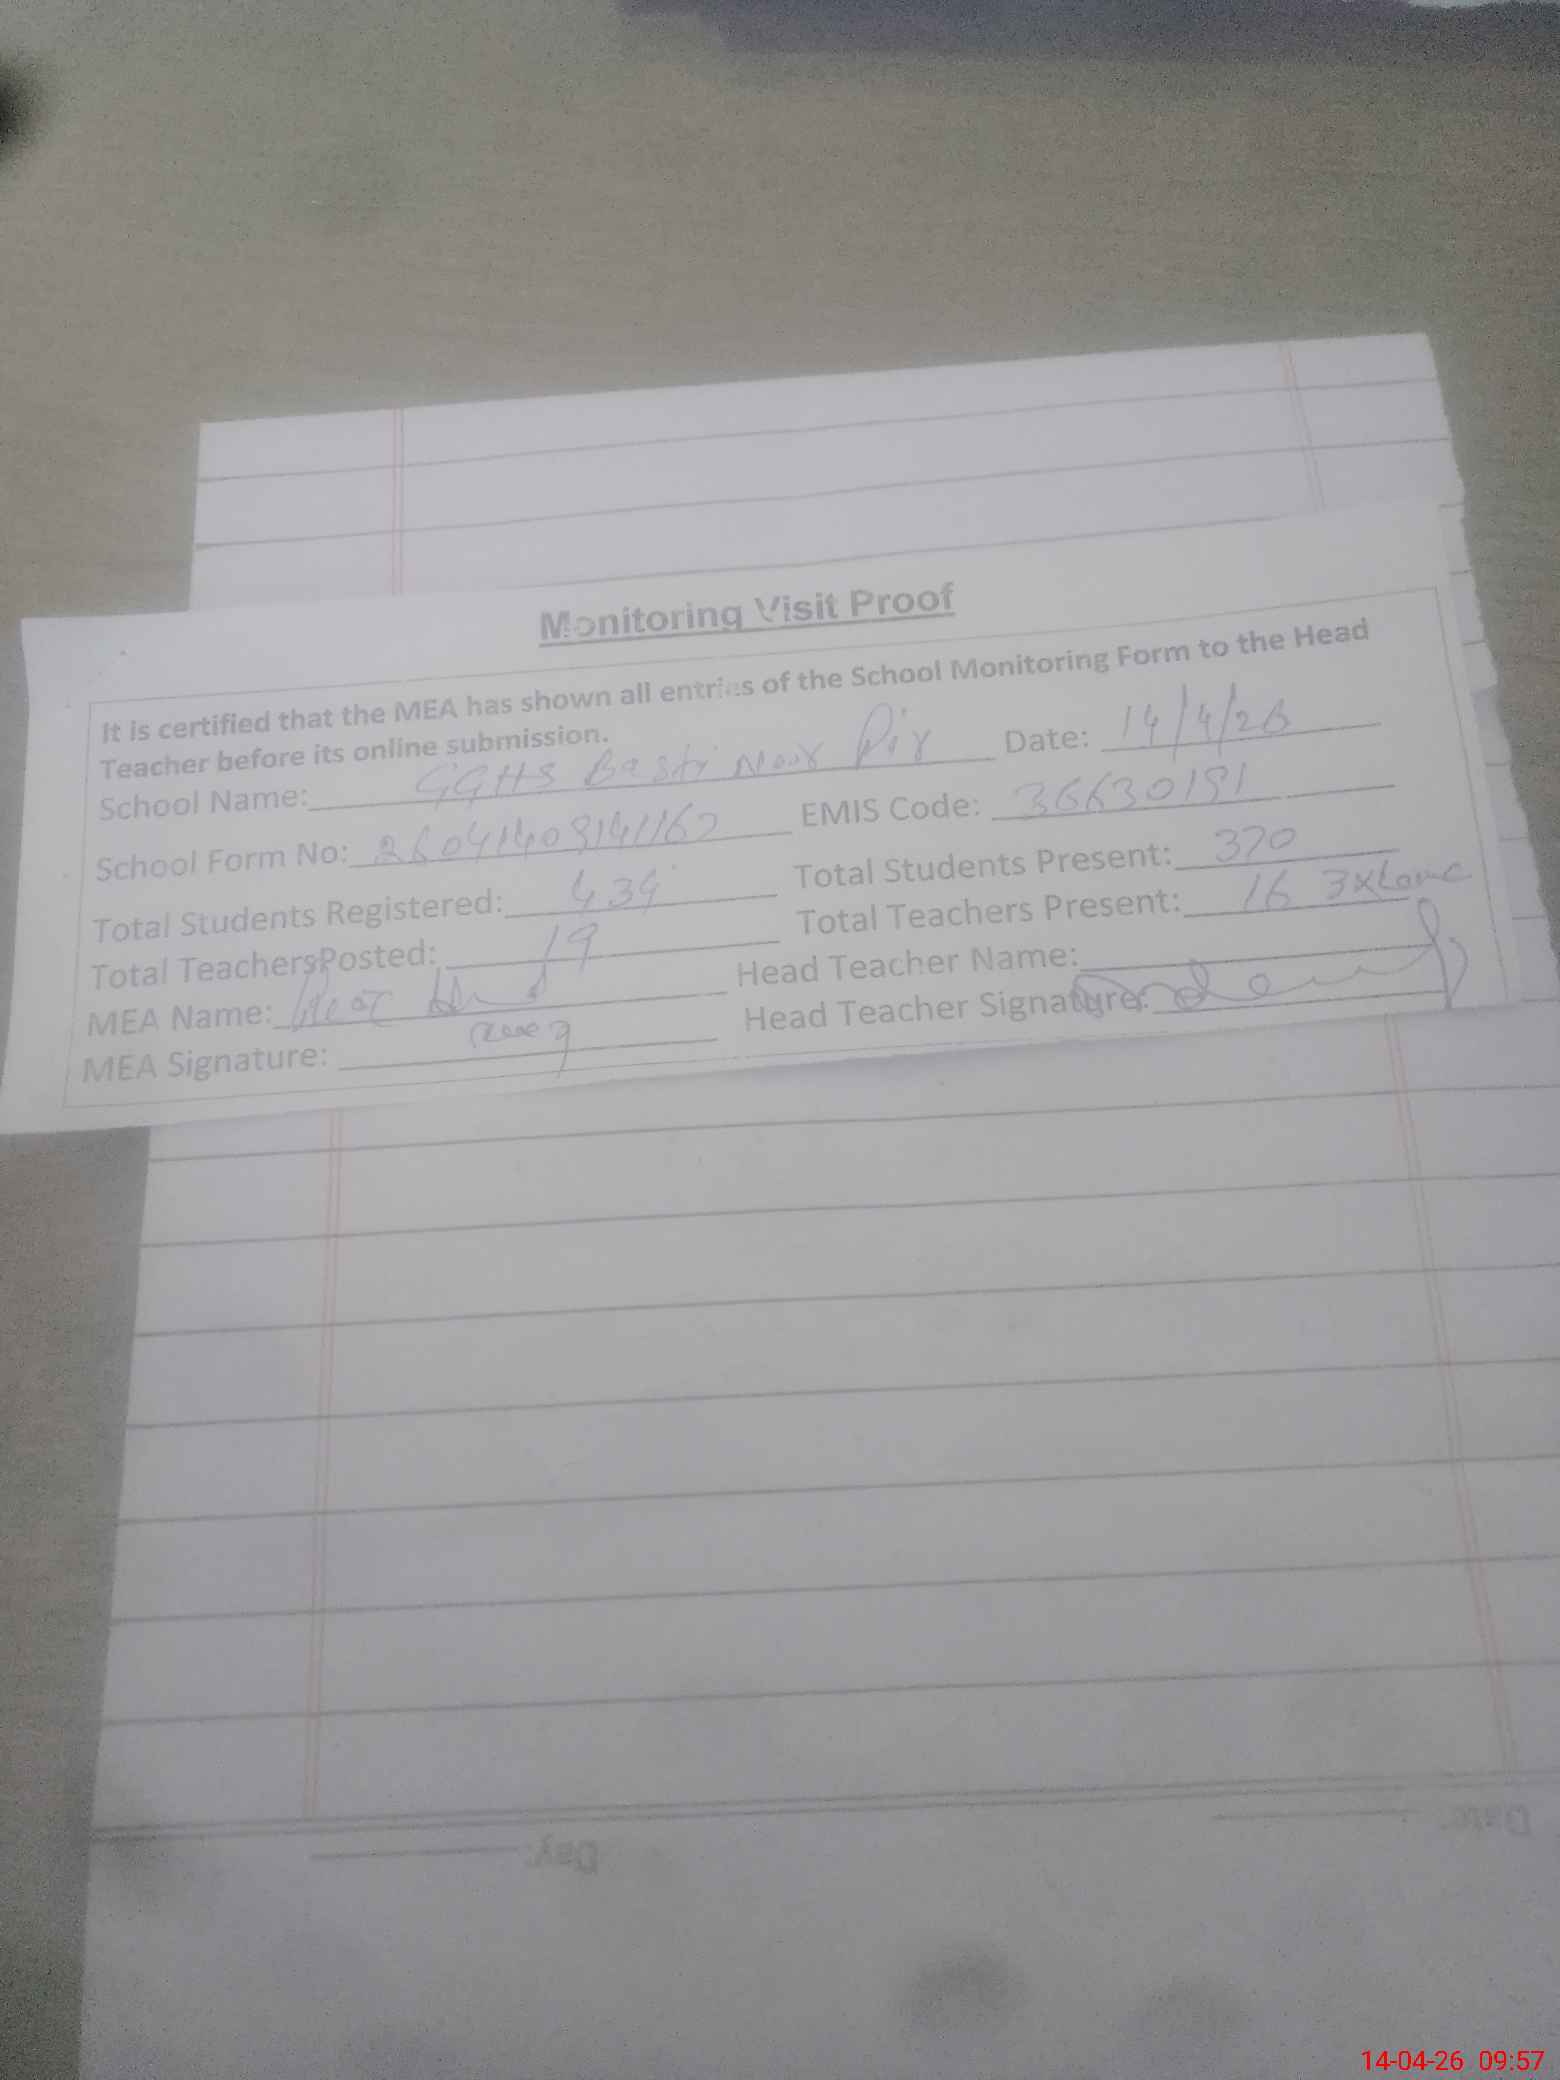 Monitoring Visit Proof
It is certified that the MEA has shown all entries of the School Monitoring Form to the Head
Teacher before its online submission.
School Name: GGHS Basti Noor Pir Date: 14/4/26
School Form No: EMIS Code: 36630191
Total Students Registered: 434 Total Students Present: 370
Total TeachersPosted: 19 Total Teachers Present: 16 3x
MEA Name: Head Teacher Name:
MEA Signature: Head Teacher Signature:
Day:
Date:
14-04-26 09:57